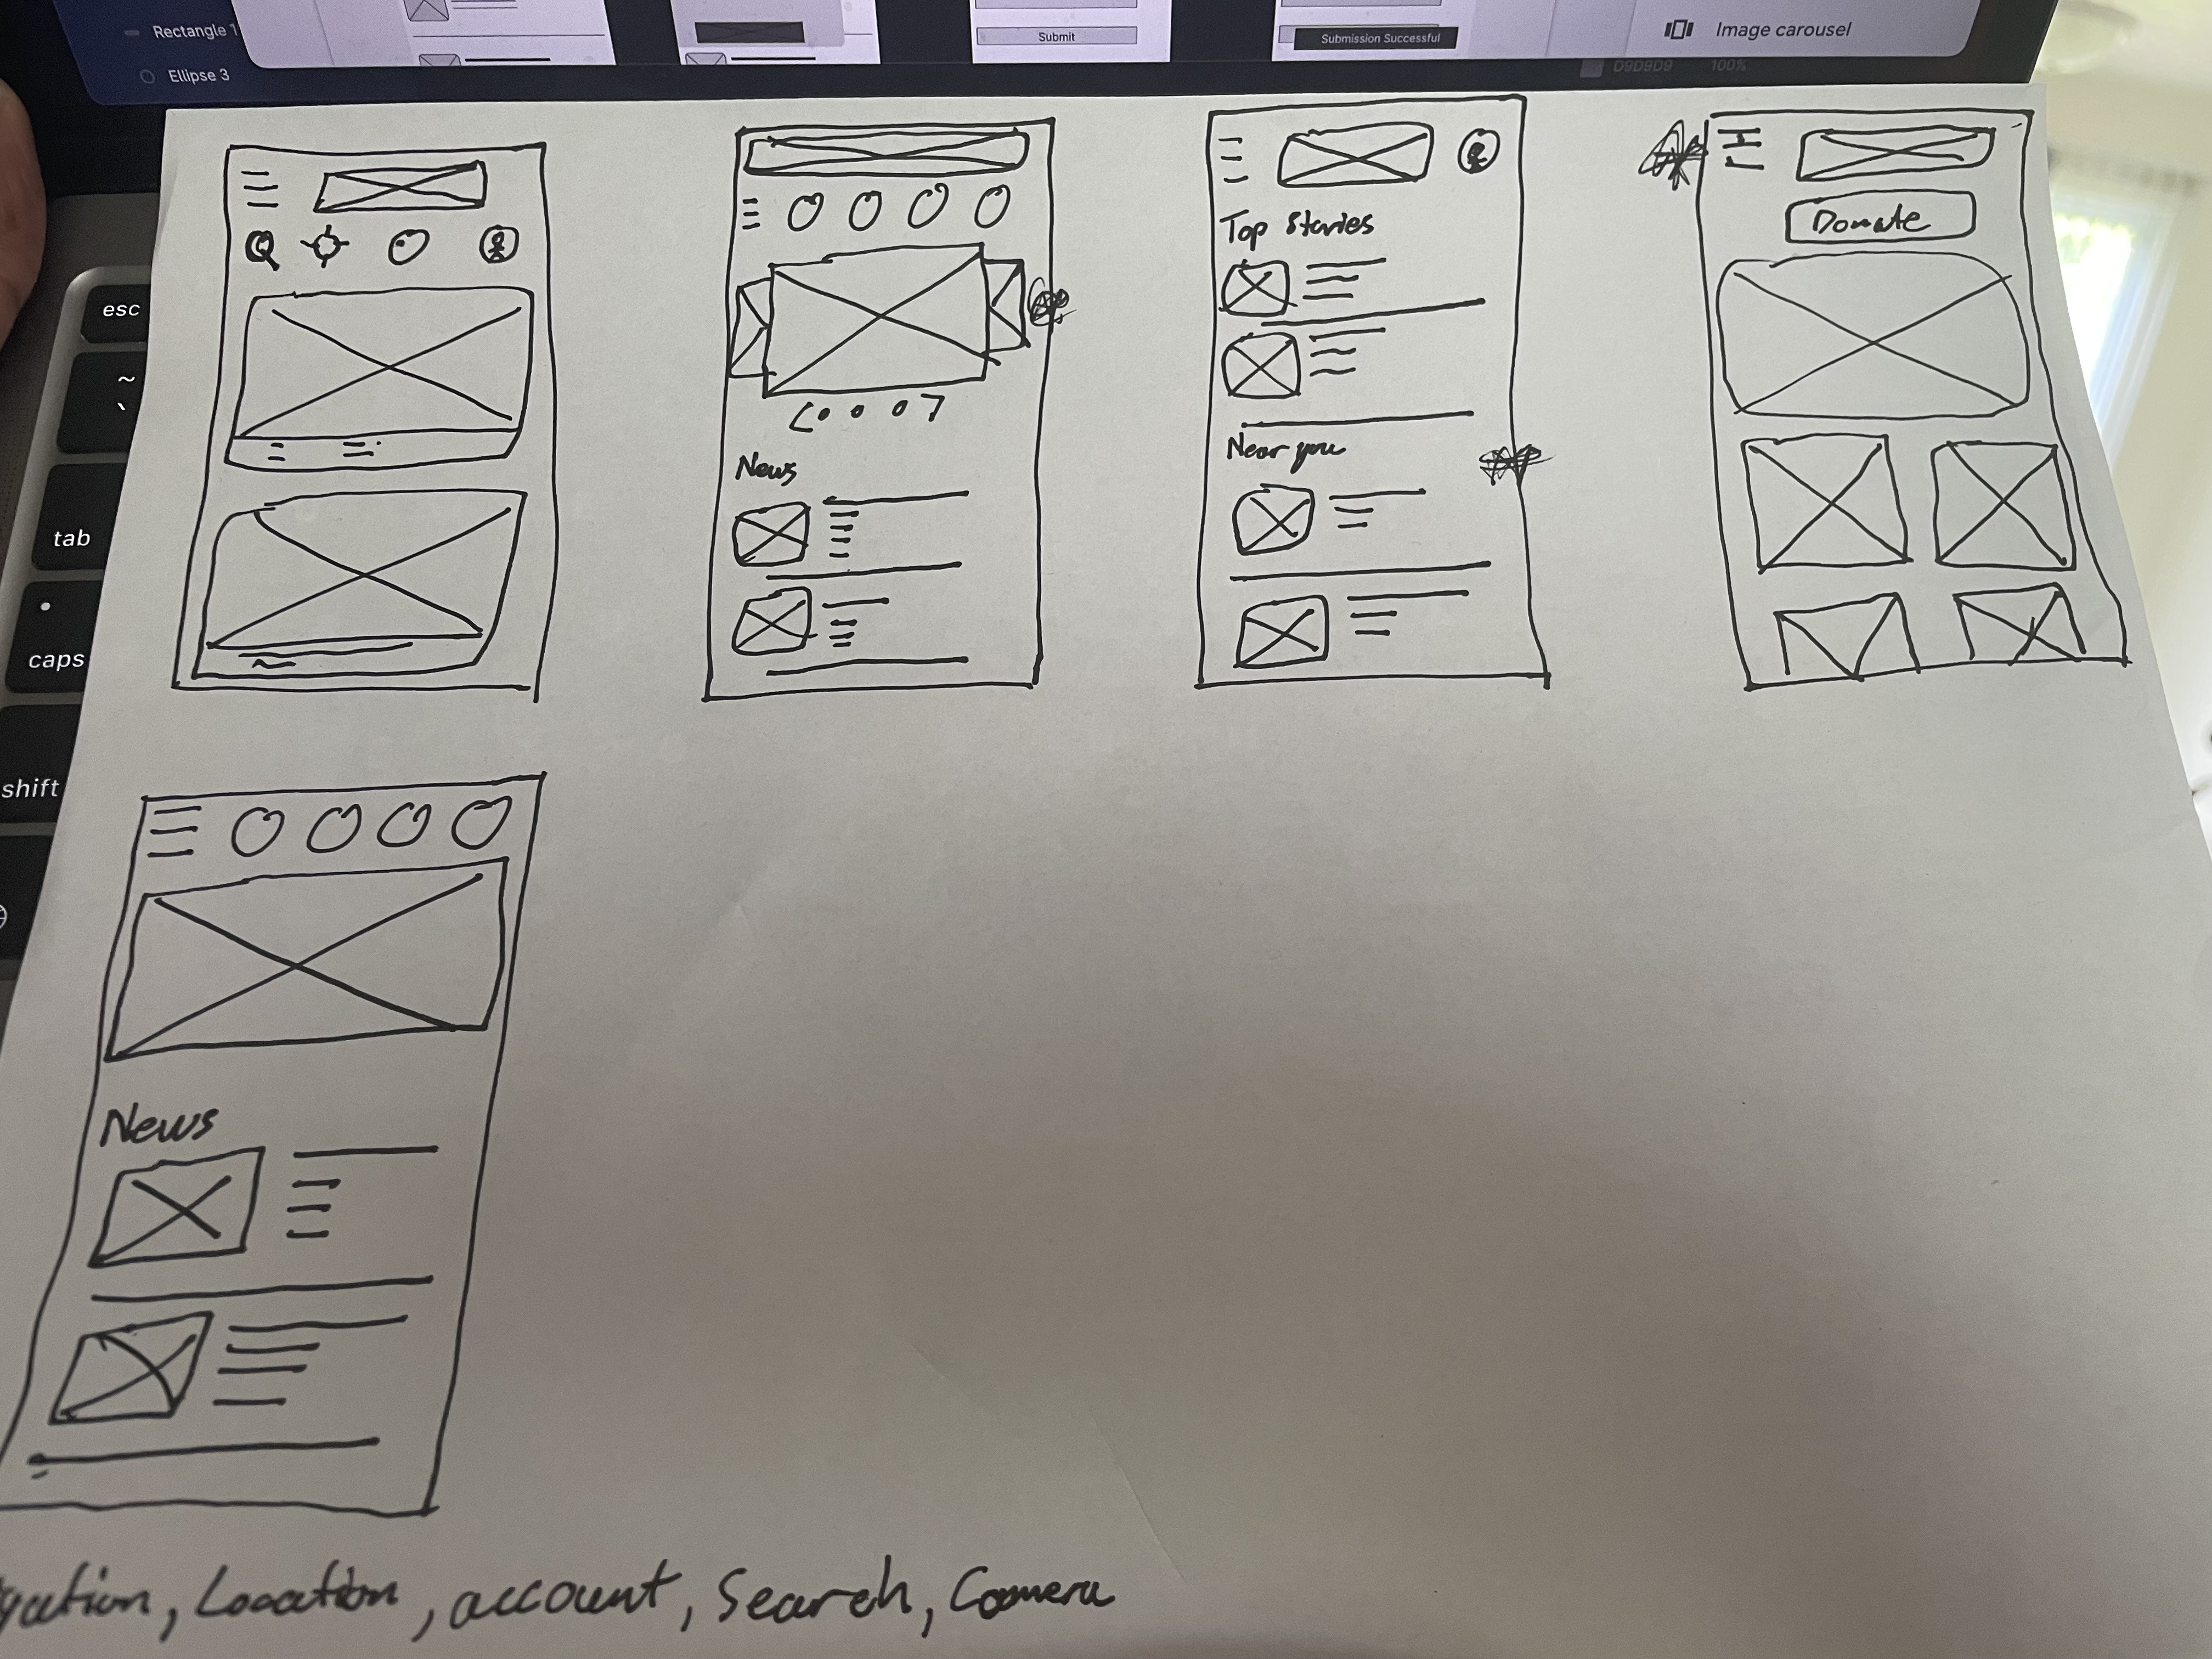 Rectangle 1
Ellipse 3
Submit
Submission Successful
Image carousel
D9D9D9 100%
esc
~
`
tab
caps
shift
Donate
Top Stories
Near you
News
News
gation, Location, account, Search, Camera